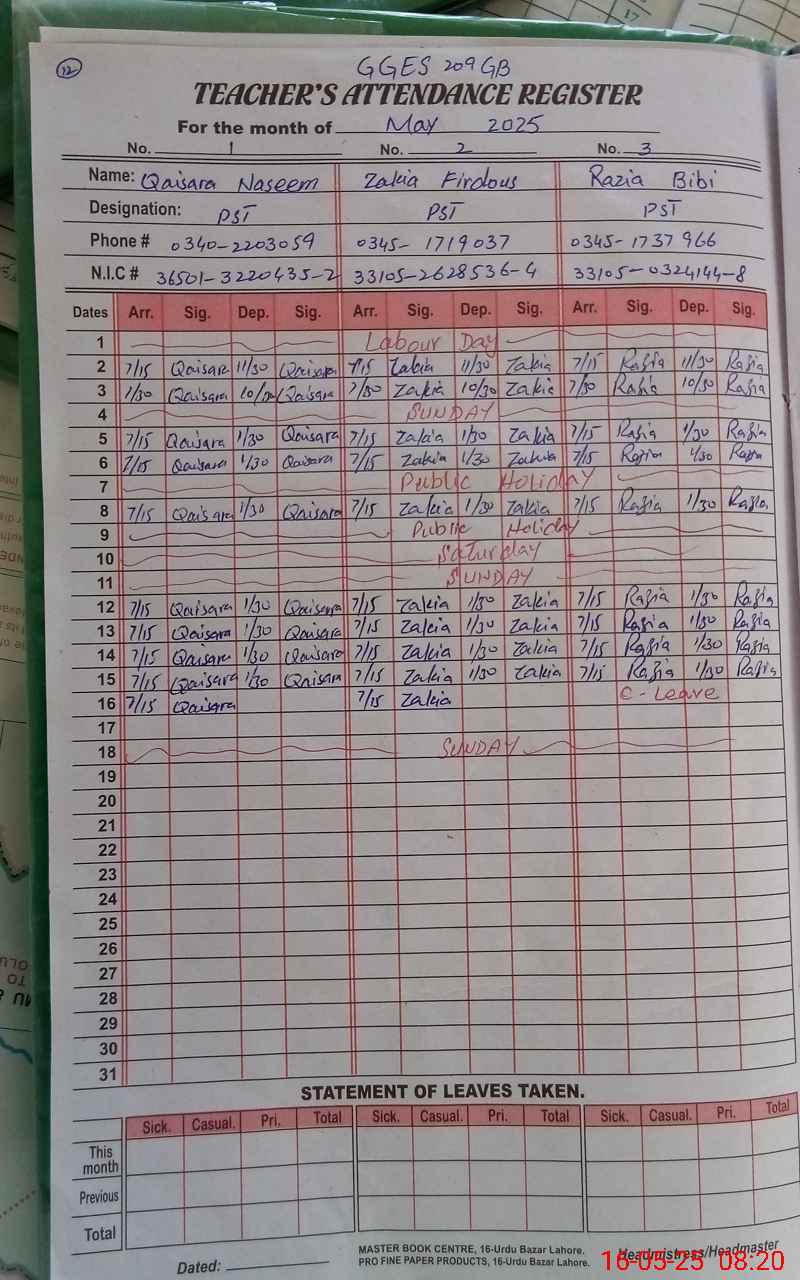 12
GGES 209 GB
TEACHER'S ATTENDANCE REGISTER
For the month of May 2025
No. 1 No. 2 No. 3
Name: Qaisara Naseem Zakia Firdous Razia Bibi
Designation: PST PST PST
Phone # 0340-2203059 0345-1719037 0345-1737966
N.I.C # 36501-3220435-2 33105-2628536-4 33105-0324144-8
Dates Arr. Sig. Dep. Sig. Arr. Sig. Dep. Sig. Arr. Sig. Dep. Sig.
1 Labour Day
2 7/15 Qaisara 11/30 Qaisara 7/15 Zakia 11/30 Zakia 7/15 Razia 11/30 Razia
3 Qaisara Qaisara 7/30 Zakia 10/30 Zakia 7/30 Razia 10/30 Razia
4 SUNDAY
5 7/15 Qaisara 1/30 Qaisara 7/15 Zakia 1/30 Zakia 7/15 Razia 1/30 Razia
6 7/15 Qaisara 1/30 Qaisara 7/15 Zakia 1/30 Zakia 7/15 Razia 1/30 Razia
7 Public Holiday
8 7/15 Qaisara 1/30 Qaisara 7/15 Zakia 1/30 Zakia 7/15 Razia 1/30 Razia
9 Public Holiday
10 Saturday
11 SUNDAY
12 7/15 Qaisara 1/30 Qaisara 7/15 Zakia 1/30 Zakia 7/15 Razia 1/30 Razia
13 7/15 Qaisara 1/30 Qaisara 7/15 Zakia 1/30 Zakia 7/15 Razia 1/30 Razia
14 7/15 Qaisara 1/30 Qaisara 7/15 Zakia 1/30 Zakia 7/15 Razia 1/30 Razia
15 7/15 Qaisara 1/30 Qaisara 7/15 Zakia 1/30 Zakia 7/15 Razia 1/30 Razia
16 7/15 Qaisara 7/15 Zakia C-Leave
17
18 SUNDAY
19
20
21
22
23
24
25
26
27
28
29
30
31
STATEMENT OF LEAVES TAKEN.
Sick. Casual. Pri. Total Sick. Casual. Pri. Total Sick. Casual. Pri. Total
This month
Previous
Total
Dated:
MASTER BOOK CENTRE, 16-Urdu Bazar Lahore.
PRO FINE PAPER PRODUCTS, 16-Urdu Bazar Lahore.
Headmistress/Headmaster
16-05-25 08:20